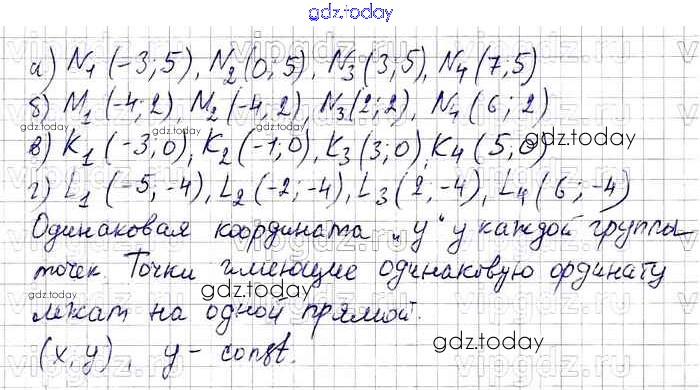 gdz.today
а) N₁(-3;5), N₂(0;5), N₃(3;5), N₄(7;5)
б) M₁(-4;2), M₂(-4,2), N₃(2;2), N₄(6;2)
gdz.today
gdz.today
в) K₁(-3;0), K₂(-1,0), K₃(3;0), K₄(5,0)
г) L₁(-5,-4), L₂(-2;-4), L₃(2,-4), L₄(6;-4)
Одинаковая координата „y“ у каждой группы
точек. Точки имеющие одинаковую ординату
gdz.today
gdz.today
лежат на одной прямой.
gdz.today
(x,y), y - const.
vipgdz.ru